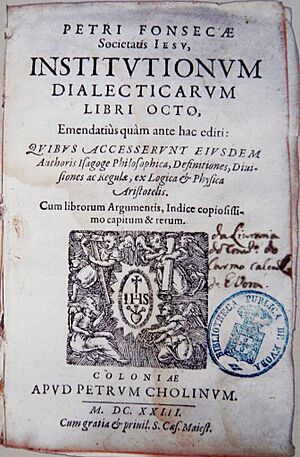 PETRI FONSECÆ
Societatis IESV,
INSTITVTIONVM
DIALECTICARVM
LIBRI OCTO,
Emendatiùs quàm ante hac editi:
QVIBVS ACCESSERVNT EIVSDEM
Authoris Isagoge Philosophica, Definitiones, Diui-
siones ac Regulæ, ex Logica & Physica
Aristotelis.
Cum librorum Argumentis, Indice copiosissi-
mo capitum & rerum.
da Livraria
do
Carmo
de Evora
IHS
BIBLIOTHECA PUBLICA DE EVORA
COLONIAE
APVD PETRVM CHOLINVM.
M. DC. XXIII.
Cum gratia & priuil. S. Cæs. Maiest.